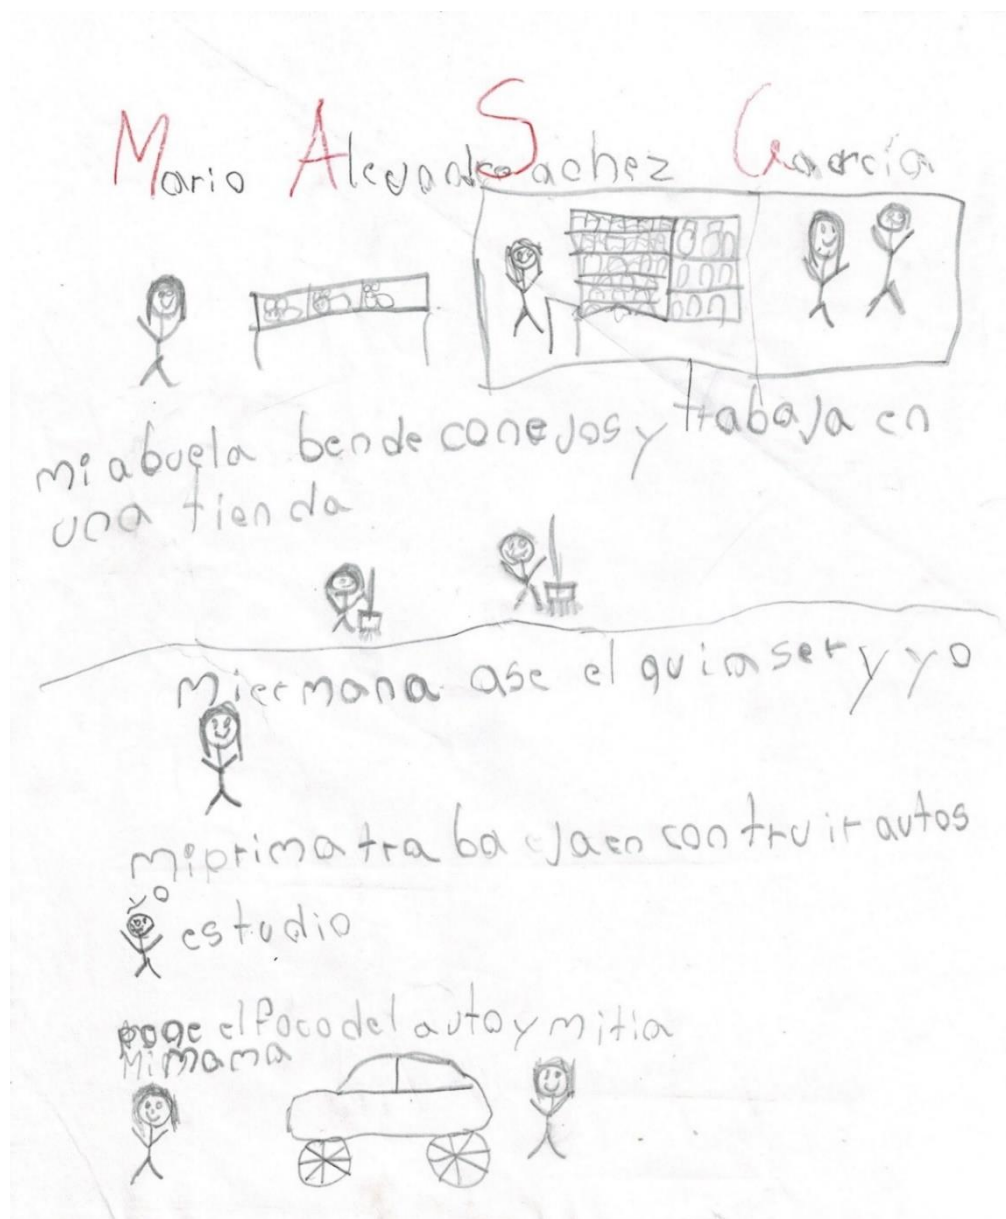 Mario Alejandro Sachez Gaarcía
mi abuela bende conejos y trabaja en
una tienda
mi ermana ase el quiaser y yo
mi prima tra ba jaen contruir autos
yo
estudio
pone el foco del auto y mi tia
Mi mama